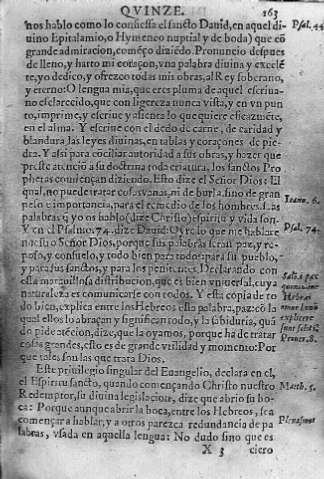 QVINZE. 163
nos hablo como lo confiessa el sancto Dauid, en aquel di-
uino Epitalamio, o Hymeneo nuptial y de boda) que cõ
grande admiracion, començo diziẽdo. Pronuncio despues
de lleno, y harto mi coraçon, vna palabra diuina y excelẽ
te, yo dedico, y ofrezco todas mis obras, al Rey soberano,
y eterno: O lengua mia, que eres pluma de aquel escriua-
no esclarecido, que con ligereza nunca vista, y en vn pun
to, imprime, y escriue y assienta lo que quiere eficazmẽte,
en el alma. Y escriue con el dedo de carne, de caridad y
blandura las leyes diuinas, en tablas y coraçones de pie-
dra. Y assi para conciliar autoridad a sus obras, y hazer que
preste atencio a su doctrina toda criatura, los sanctos Pro
phetas començauan diziendo. Esto dize el Señor Dios: El
qual, no puede tratar cosas vanas, ni de burla, sino de gran
peso e importancia, para el remedio de los hombres. Las
palabras q̃ yo os hablo (dize Christo) espiritu y vida son.
Y en el Psalmo, 74. dize Dauid: Oyre lo que me hablare
mi Señor Dios, porque sus palabras seran paz, y re-
poso, y consuelo, y todo bien para todos: para su pueblo,
y para sus sanctos, y para los penitentes. Declarando con
esta marauillosa distribucion, que es bien vniuersal, cuya
naturaleza es comunicarse con todos. Y esta copia de to
do bien, explica entre los Hebreos esta palabra, paz: cõ la
qual ellos hablauan y significan todo, y la sabiduria, quã
do pide atẽcion, dize, que la oyamos, porque ha de tratar
cosas grandes, esto es de grande vtilidad y momento: Por
que tales son las que trata Dios.
Este priuilegio singular del Euangelio, declara en el,
el Espiritu sancto, quando començando Christo nuestro
Redemptor, su diuina legislacion, dize que abrio su bo-
ca: Porque aunque abrir la boca, entre los Hebreos, sea
començar a hablar, y a otros parezca redundancia de pa
labras, vsada en aquella lengua: No dudo sino que es
X 3 ciero
Psal. 44
Ioann. 6.
Psal. 74.
Prouer. 8.
Matth. 5.